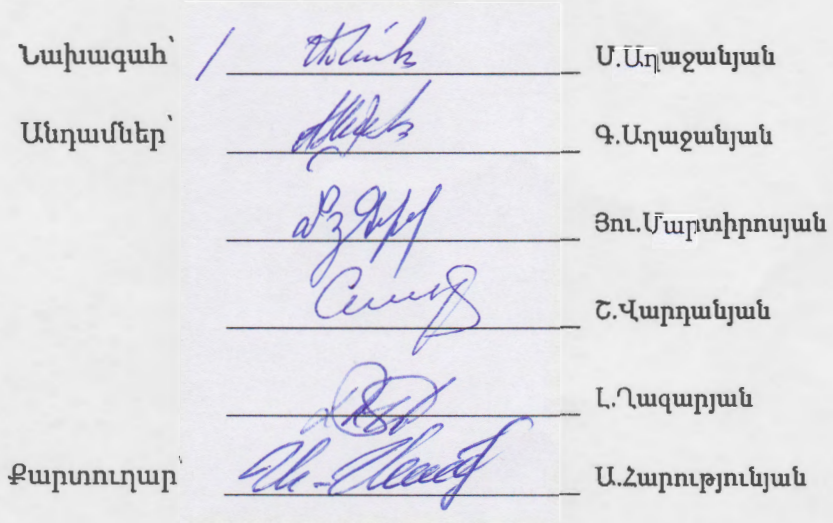 Նախագահ՝ Մ.Աղաջանյան
Անդամներ՝ Գ.Աղաջանյան
Յու.Մարտիրոսյան
Շ.Վարդանյան
Լ.Ղազարյան
Քարտուղար՝ Ա.Հարությունյան